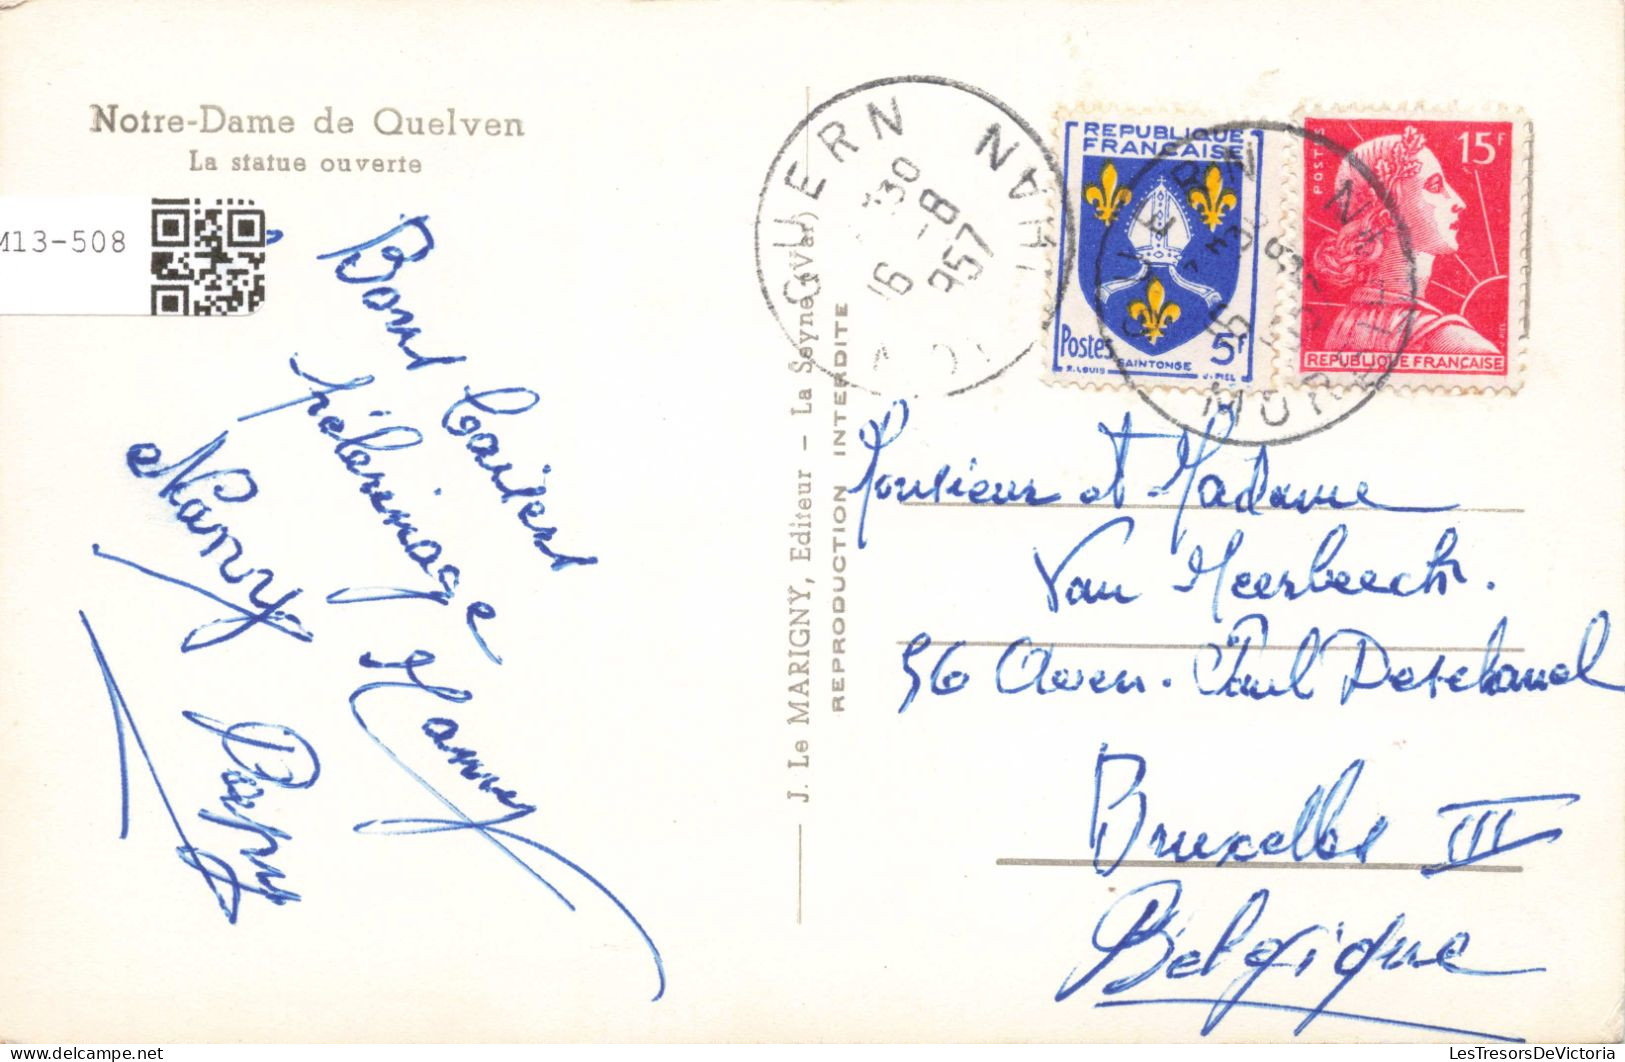 Notre-Dame de Quelven
La statue ouverte
M13-508
Bons baisers
pèlerinage
Nanny
Manny
J. Le MARIGNY, Editeur - La Seyne (Var)
REPRODUCTION INTERDITE
GUERN
MORBIHAN
16 -8
1957
REPUBLIQUE
FRANCAISE
Postes 5F
SAINTONGE
R. LOUIS J. PIEL
POSTES
15F
REPUBLIQUE FRANÇAISE
GUERN
MORBIHAN
Monsieur et Madame
Van Meerbeeck.
56 Aven. Paul Deschanel
Bruxelles III
Belgique
LesTresorsDeVictoria